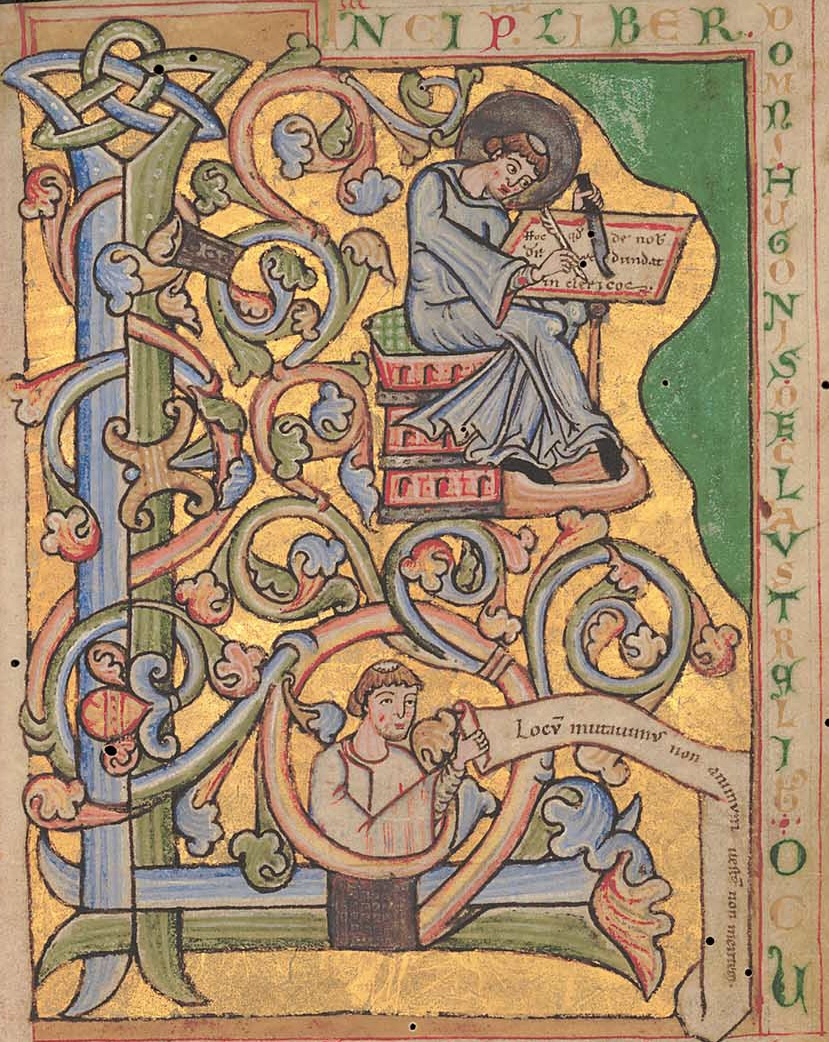 NCIP. LIBER.
DOMNI HUGONIS DE CLAVSTRALIB;
OCU
Hoc qd de nob
dundat
in clericos
Locū mutauimus non animum ueste non mentem